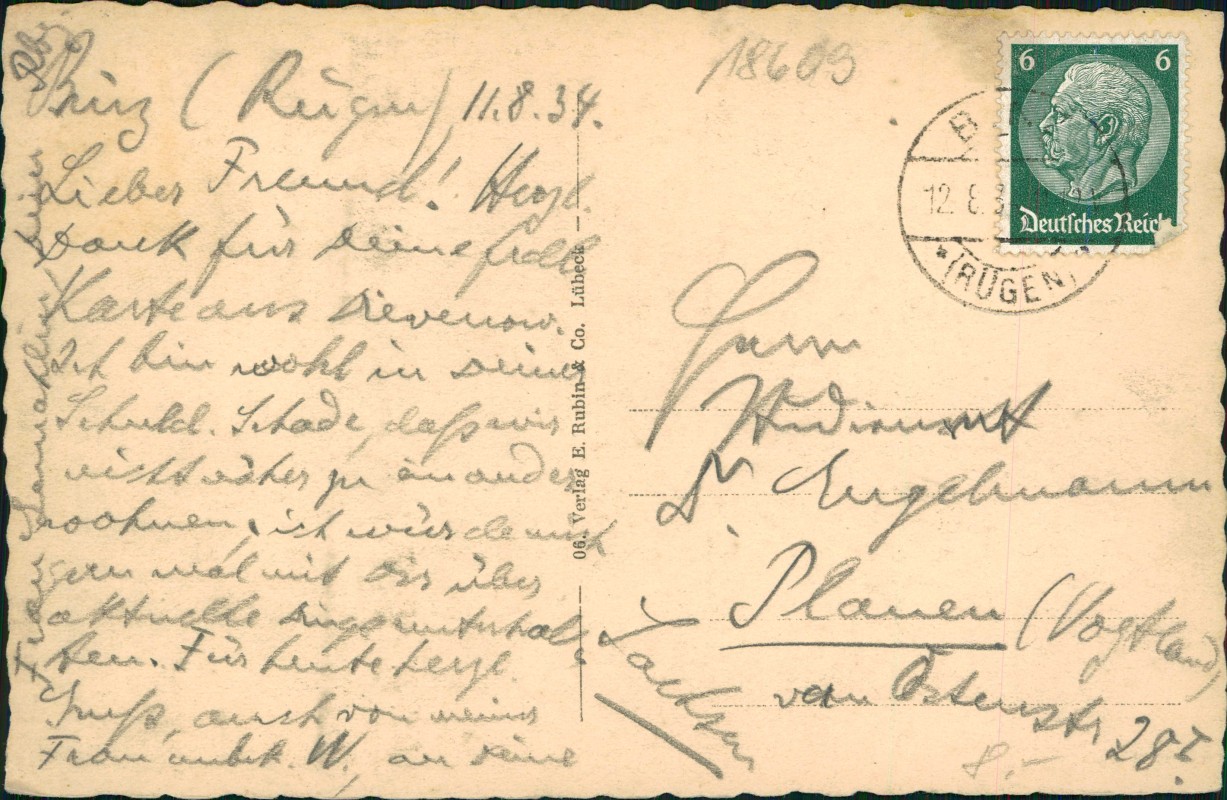 Binz (Rügen) 11.8.34.
Lieber Freund! Herzl.
Dank für Deine frdl.
Karte aus Dievenow.
Ich bin wohl in Deiner
Schuld. Schade, daß wir
nicht näher zu einander
wohnen, ich würde mich
gern mal mit Dir über
aktuelle Dinge unterhal-
ten. Für heute herzl.
Gruß, auch von meiner
Frau unbek. W., an Deine
Frau
Dein
18609
6 6
Deutsches Reich
12.8.3
(RÜGEN)
06. Verlag E. Rubin & Co. Lübeck
Herrn
Dr. Engelmann
Plauen (Vogtland)
Sachsen
van Ostenstr
28I.
8.-